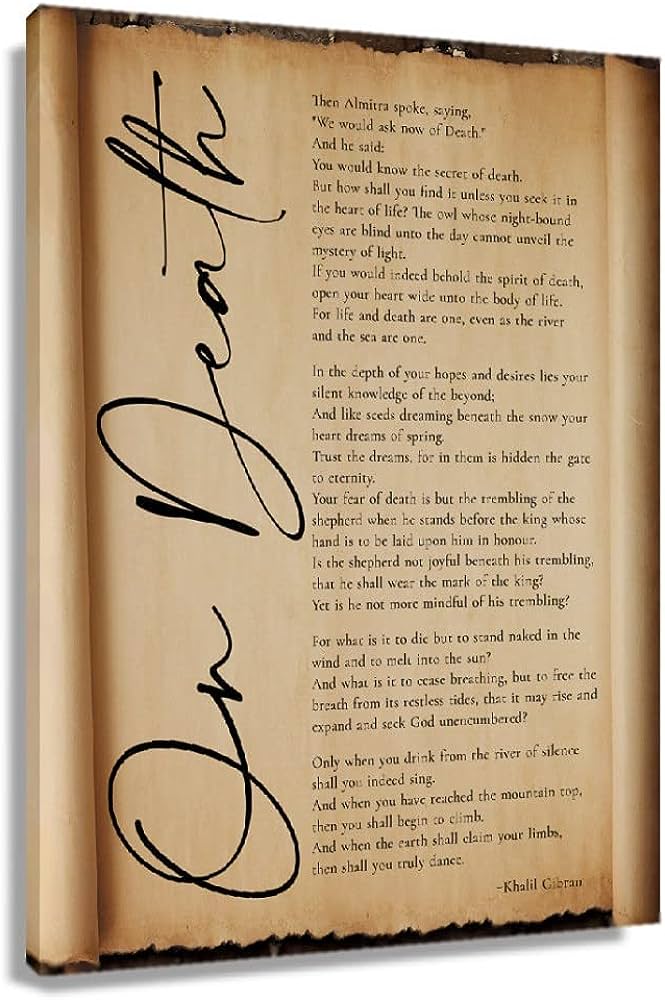 On Death
Then Almitra spoke, saying,
"We would ask now of Death."
And he said:
You would know the secret of death.
But how shall you find it unless you seek it in
the heart of life? The owl whose night-bound
eyes are blind unto the day cannot unveil the
mystery of light.
If you would indeed behold the spirit of death,
open your heart wide unto the body of life.
For life and death are one, even as the river
and the sea are one.
In the depth of your hopes and desires lies your
silent knowledge of the beyond;
And like seeds dreaming beneath the snow your
heart dreams of spring.
Trust the dreams, for in them is hidden the gate
to eternity.
Your fear of death is but the trembling of the
shepherd when he stands before the king whose
hand is to be laid upon him in honour.
Is the shepherd not joyful beneath his trembling,
that he shall wear the mark of the king?
Yet is he not more mindful of his trembling?
For what is it to die but to stand naked in the
wind and to melt into the sun?
And what is it to cease breathing, but to free the
breath from its restless tides, that it may rise and
expand and seek God unencumbered?
Only when you drink from the river of silence
shall you indeed sing.
And when you have reached the mountain top,
then you shall begin to climb.
And when the earth shall claim your limbs,
then shall you truly dance.
-Khalil Gibran